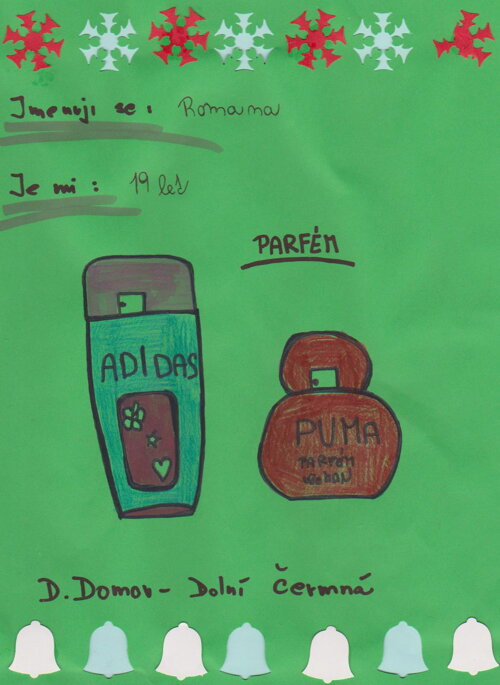 Jmenuji se : Romana
Je mi : 19 let
PARFÉM
ADIDAS
PUMA
PARFÉM
D. Domov - Dolní Čermná